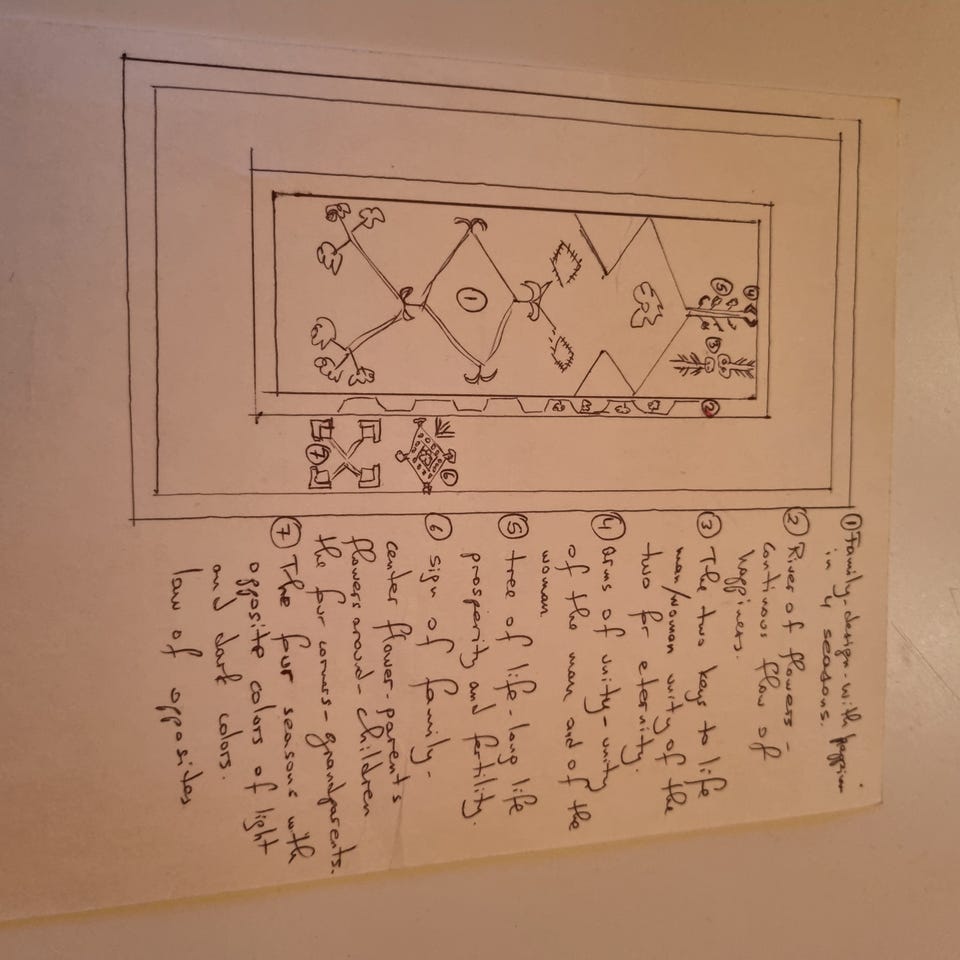 ④
⑤
③
②
①
⑥
⑦
① Family-design-with
in 4 seasons.
② River of flowers -
continous flow of
happines.
③ The two keys to life
man/woman unity of the
two for eternity.
④ arms of unity-unity
of the man and of the
woman
⑤ tree of life-long life
prosperity and fertility.
⑥ sign of family-
center flower-parents
flowers around-children
the fur corners-grandparents.
⑦ The fur seasons with
opposite colors of light
and dark colors.
law of opposites